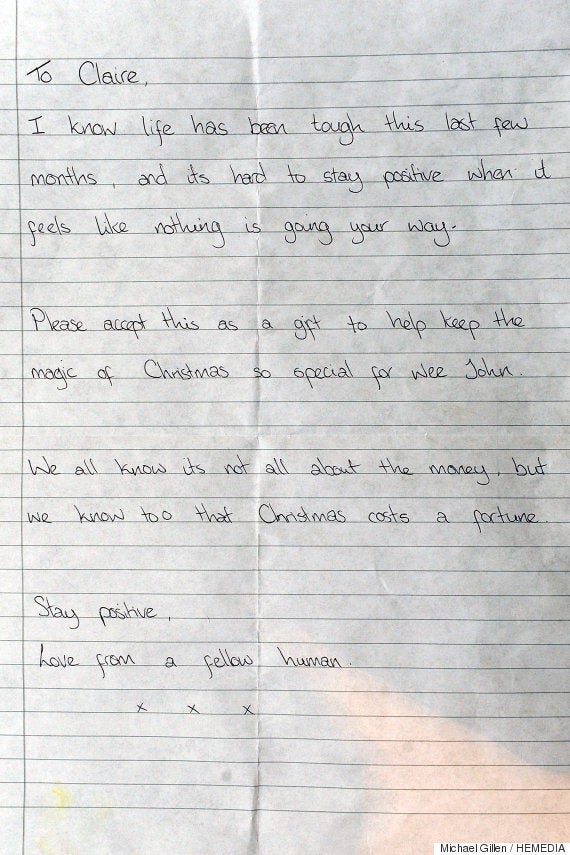 To Claire,
I know life has been tough this last few
months, and its hard to stay positive when it
feels like nothing is going your way.
Please accept this as a gift to help keep the
magic of Christmas so special for wee John.
We all know its not all about the money, but
we know too that Christmas costs a fortune.
Stay positive,
Love from a fellow human.
x x x
Michael Gillen / HEMEDIA